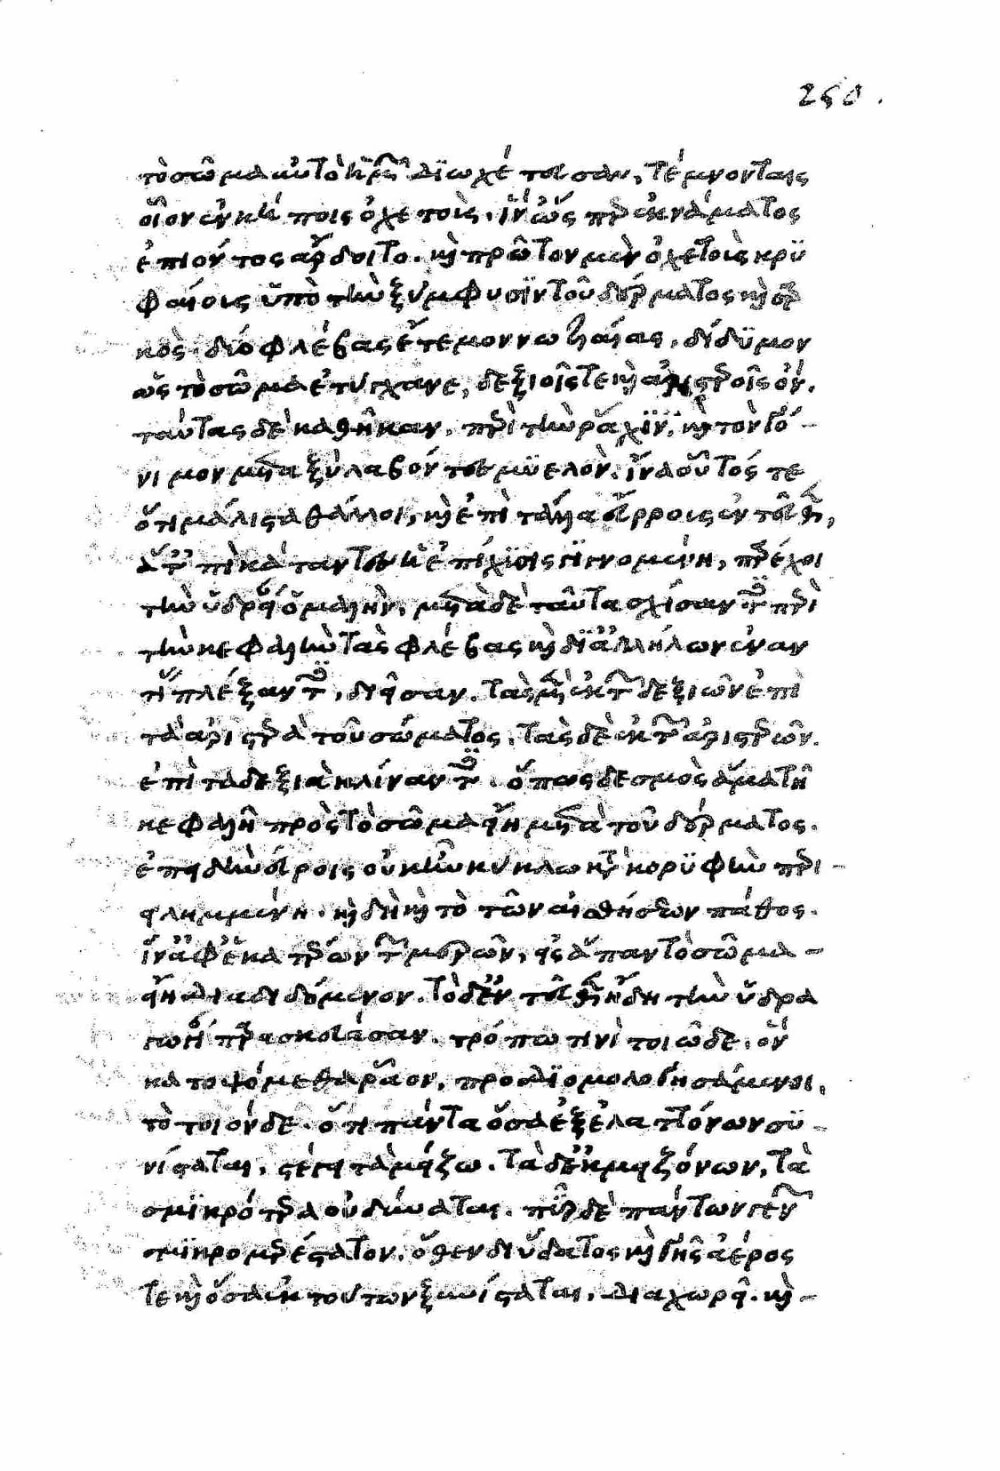 250.
τὸ σῶμα αὐτὸ ἡμῶν διωχέτευσαν, τέμνοντες
οἷον ἐν κήποις ὀχετούς, ἵν' ὥσπερ ἐκ νάματος
ἐπιόντος ἄρδοιτο. καὶ πρῶτον μὲν ὀχετοὺς κρυ
φαίους ὑπὸ τὴν ξύμφυσιν τοῦ δέρματος καὶ σαρ
κὸς. δύο φλέβας ἔτεμον νωτιαίας, δίδυμον
ὡς τὸ σῶμα ἐτύγχανε, δεξιοῖς τε καὶ ἀριστεροῖς ὄν.
ταύτας δὲ καθῆκαν, περὶ τὴν ῥάχιν, καὶ τὸν γό-
νιμον μεταξὺ λαβόντες μυελὸν. ἵνα οὗτός τε
ὅτι μάλιστα θάλλοι, καὶ ἐπὶ τἄλλα εὔρρους ἐντεῦθεν,
ἅτε ἐπὶ κάταντες ἡ ἐπίχυσις γινομένη, παρέχοι
τὴν ὑδρείαν ὁμαλήν, μετὰ δὲ ταῦτα σχίσαντες περὶ
τὴν κεφαλὴν τὰς φλέβας καὶ δι' ἀλλήλων ἐναν
τί πλέξαντες, διεῖσαν. τὰς μὲν ἐκ τῶν δεξιῶν ἐπὶ
τὰ ἀριστερὰ τοῦ σώματος, τὰς δὲ ἐκ τῶν ἀριστερῶν.
ἐπὶ τὰ δεξιὰ κλίναντες. ὅπως δεσμὸς ἅμα τῇ
κεφαλῇ πρὸς τὸ σῶμα εἴη μετὰ τοῦ δέρματος.
ἐπειδὴ νεύροις οὐκ ἦν κύκλω κατὰ κορυφὴν περι-
ειλημμένη. καὶ δὴ καὶ τὸ τῶν αἰσθήσεων πάθος.
ἵν' ἀφ' ἑκατέρων τῶν μερῶν, εἰς ἅπαν τὸ σῶμα -
εἴη διαδιδόμενον. τὸ δ' ἐντεῦθεν ἤδη τὴν ὑδρα
γωγίαν παρεσκεύασαν. τρόπω τινὶ τοιῶδε. ὃν
κατοψόμεθα ῥᾶον, προδιομολογησάμενοι,
τὸ τοιόνδε. ὅτι πάντα ὅσα ἐξ ἐλαττόνων συ-
νίσταται, στέγει τὰ μείζω. τὰ δὲ ἐκ μειζόνων, τὰ
σμικρότερα οὐ δύναται. πῦρ δὲ πάντων γενῶν
σμικρομερέστατον. ὅθεν δι' ὕδατος καὶ γῆς ἀέρος
τε καὶ ὅσα ἐκ τούτων ξυνίσταται, διαχωρεῖ. καὶ -